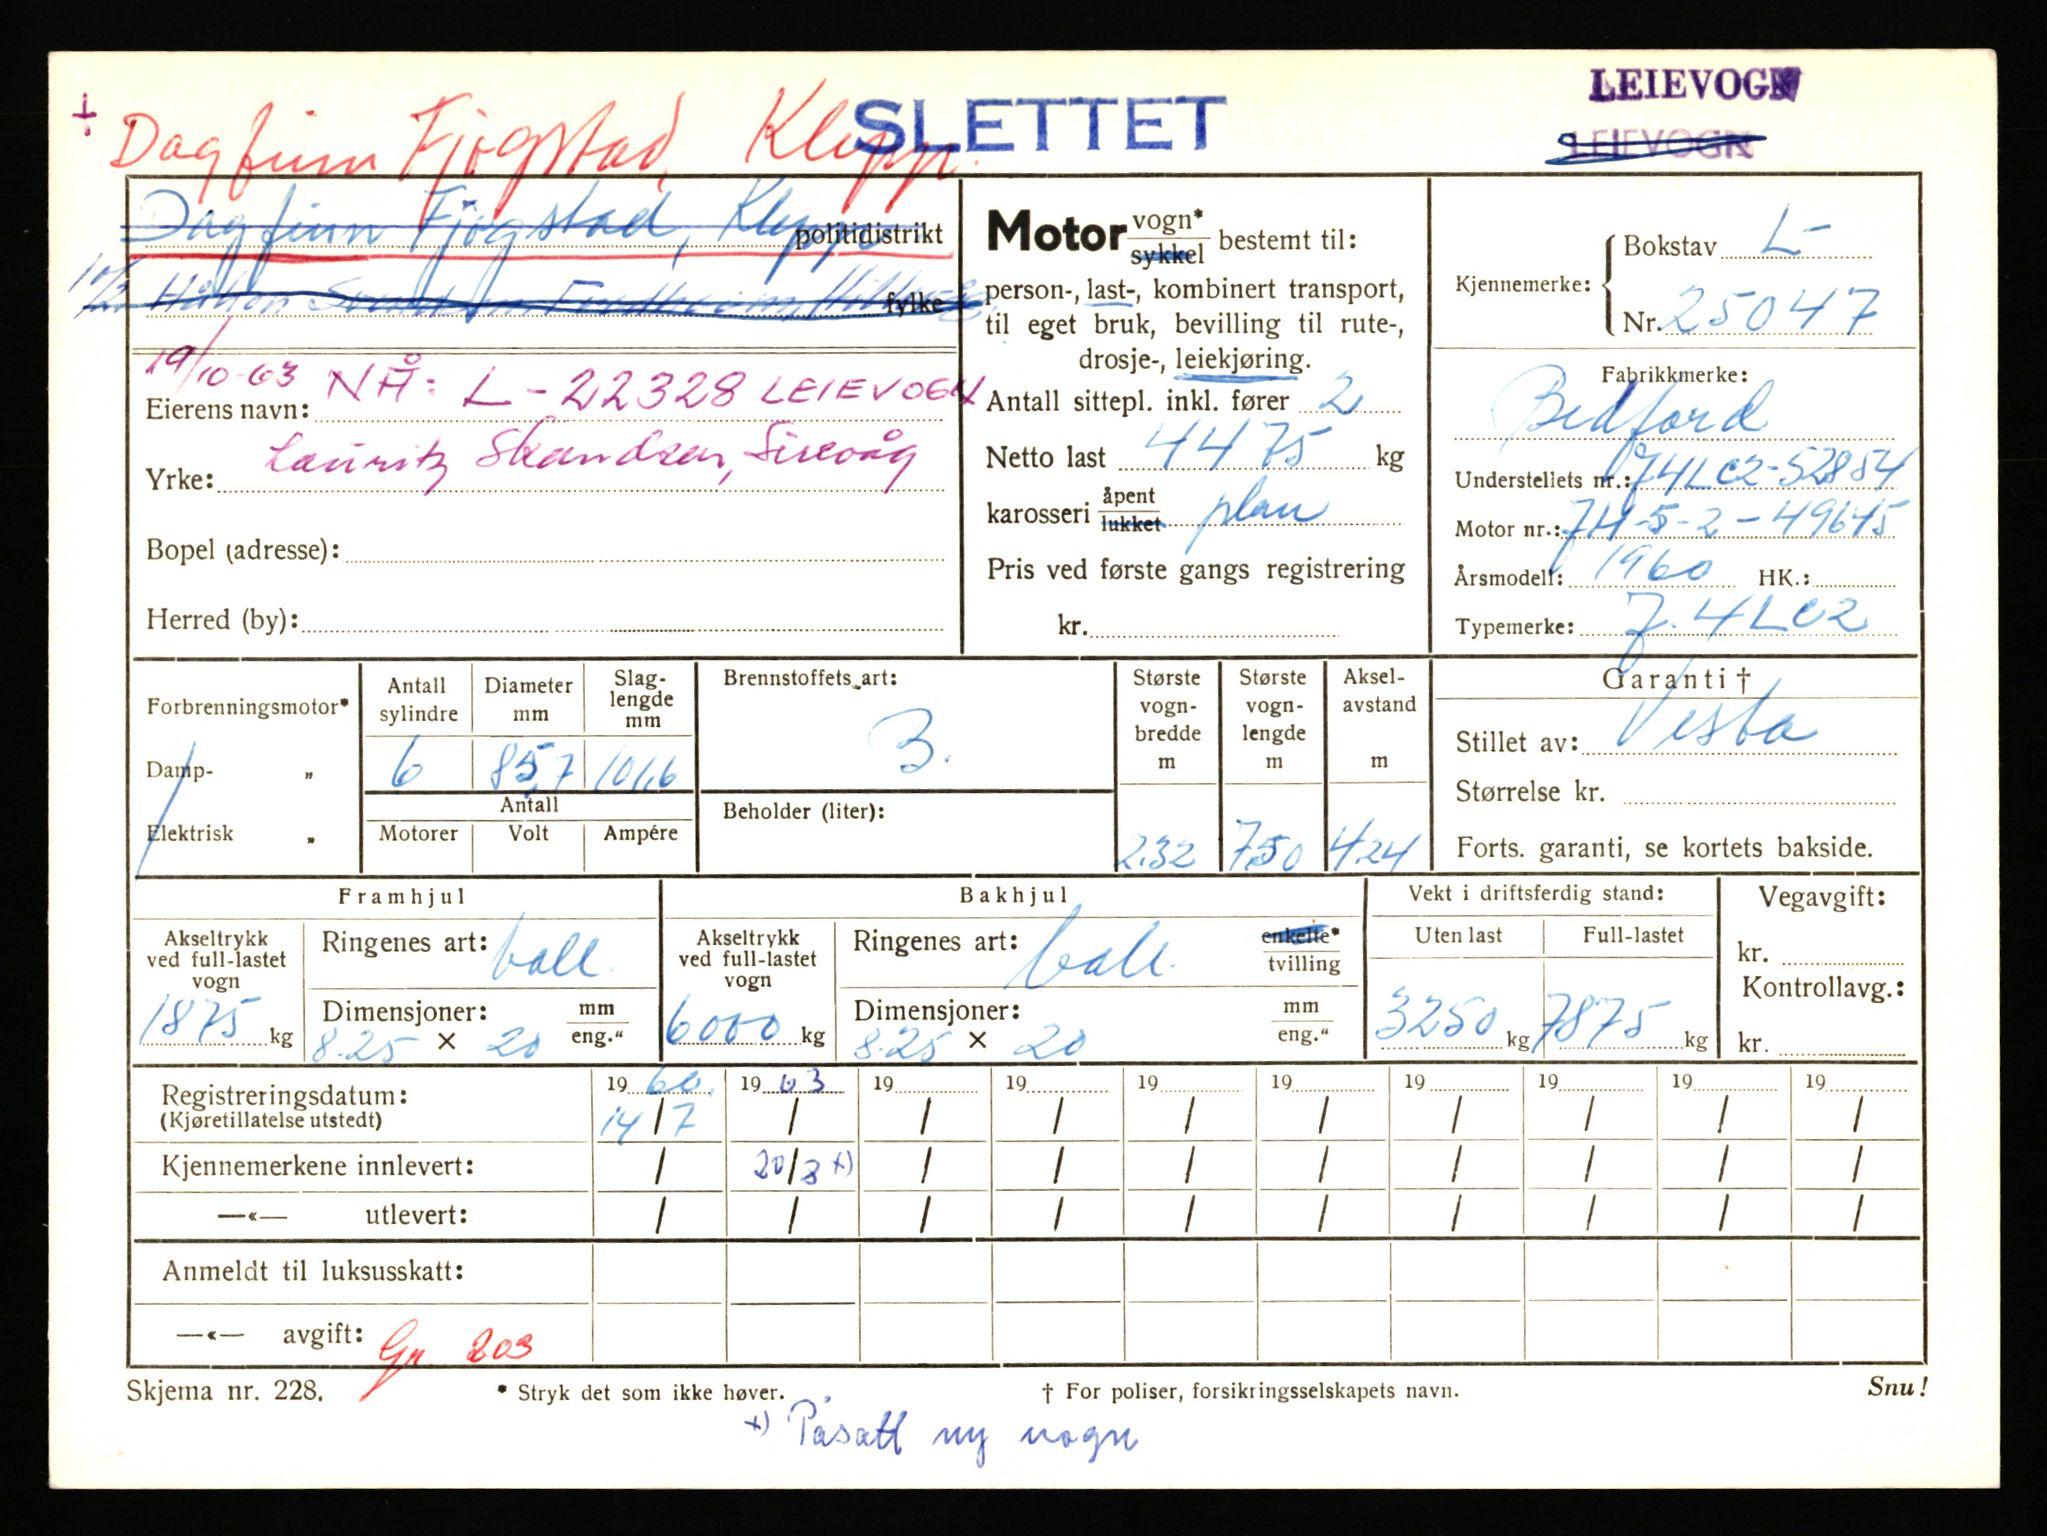 LEIEVOGN
SLETTET
LEIEVOGN
Dagfinn Fjogstad, Klepp.
Dagfinn Fjogstad, Klepp politidistrikt
10/2 Håkon fylke
19/10-63 NÅ: L-22328 LEIEVOGN
Eierens navn:
Lauritz Skandsen, Sirevåg
Yrke:
Bopel (adresse):
Herred (by):
Motor vogn* sykkel bestemt til:
person-, last-, kombinert transport,
til eget bruk, bevilling til rute-,
drosje-, leiekjøring.
Antall sittepl. inkl. fører 2
Netto last 4475 kg
karosseri åpent lukket plan
Pris ved første gangs registrering
kr.
Kjennemerke: Bokstav L-
Nr. 25047
Fabrikkmerke:
Bedford
Understellets nr.: J4LC2-52854
Motor nr.: JH-5-2-49645
Årsmodell: 1960 HK.:
Typemerke: J.4LC2
Forbrenningsmotor*
Damp- „
Elektrisk „
Antall sylindre
Diameter mm
Slag-lengde mm
6 85,7 101,6
Antall
Motorer Volt Ampére
Brennstoffets art:
B.
Beholder (liter):
Største vogn-bredde m
2.32
Største vogn-lengde m
7,50
Aksel-avstand m
4.24
Garanti †
Stillet av: Vesta
Størrelse kr.
Forts. garanti, se kortets bakside.
Framhjul
Akseltrykk ved full-lastet vogn
1875 kg
Ringenes art: ball.
Dimensjoner: mm eng."
8.25 × 20
Bakhjul
Akseltrykk ved full-lastet vogn
6000 kg
Ringenes art: ball. enkelte* tvilling
Dimensjoner: mm eng."
8.25 × 20
Vekt i driftsferdig stand:
Uten last Full-lastet
3250 kg 7875 kg
Vegavgift:
kr.
Kontrollavg.:
kr.
Registreringsdatum: 1960. 1963 19 19 19 19 19 19 19 19
(Kjøretillatelse utstedt) 14/7 / / / / / / / / /
Kjennemerkene innlevert: / 20/8 x) / / / / / / / /
—«— utlevert: / / / / / / / / / /
Anmeldt til luksusskatt:
—«— avgift: Gr 203
Skjema nr. 228. * Stryk det som ikke høver. † For poliser, forsikringsselskapets navn. Snu!
x) Påsatt ny vogn